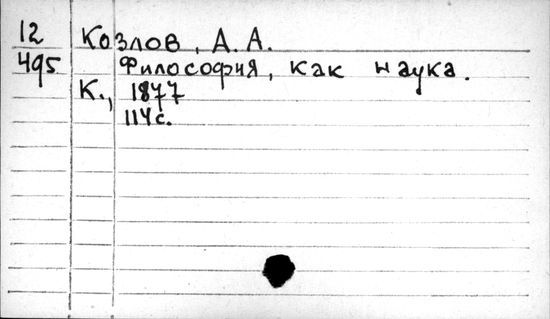 12 Козлов, А. А.
495 Философия, как наука.
К., 1877
114 с.